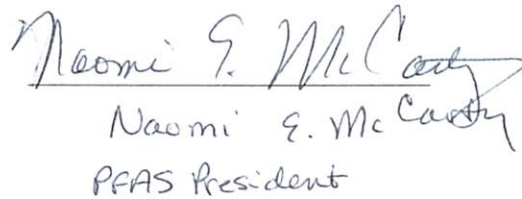 Naomi E. McCarty
Naomi E. McCarty
PFAS President